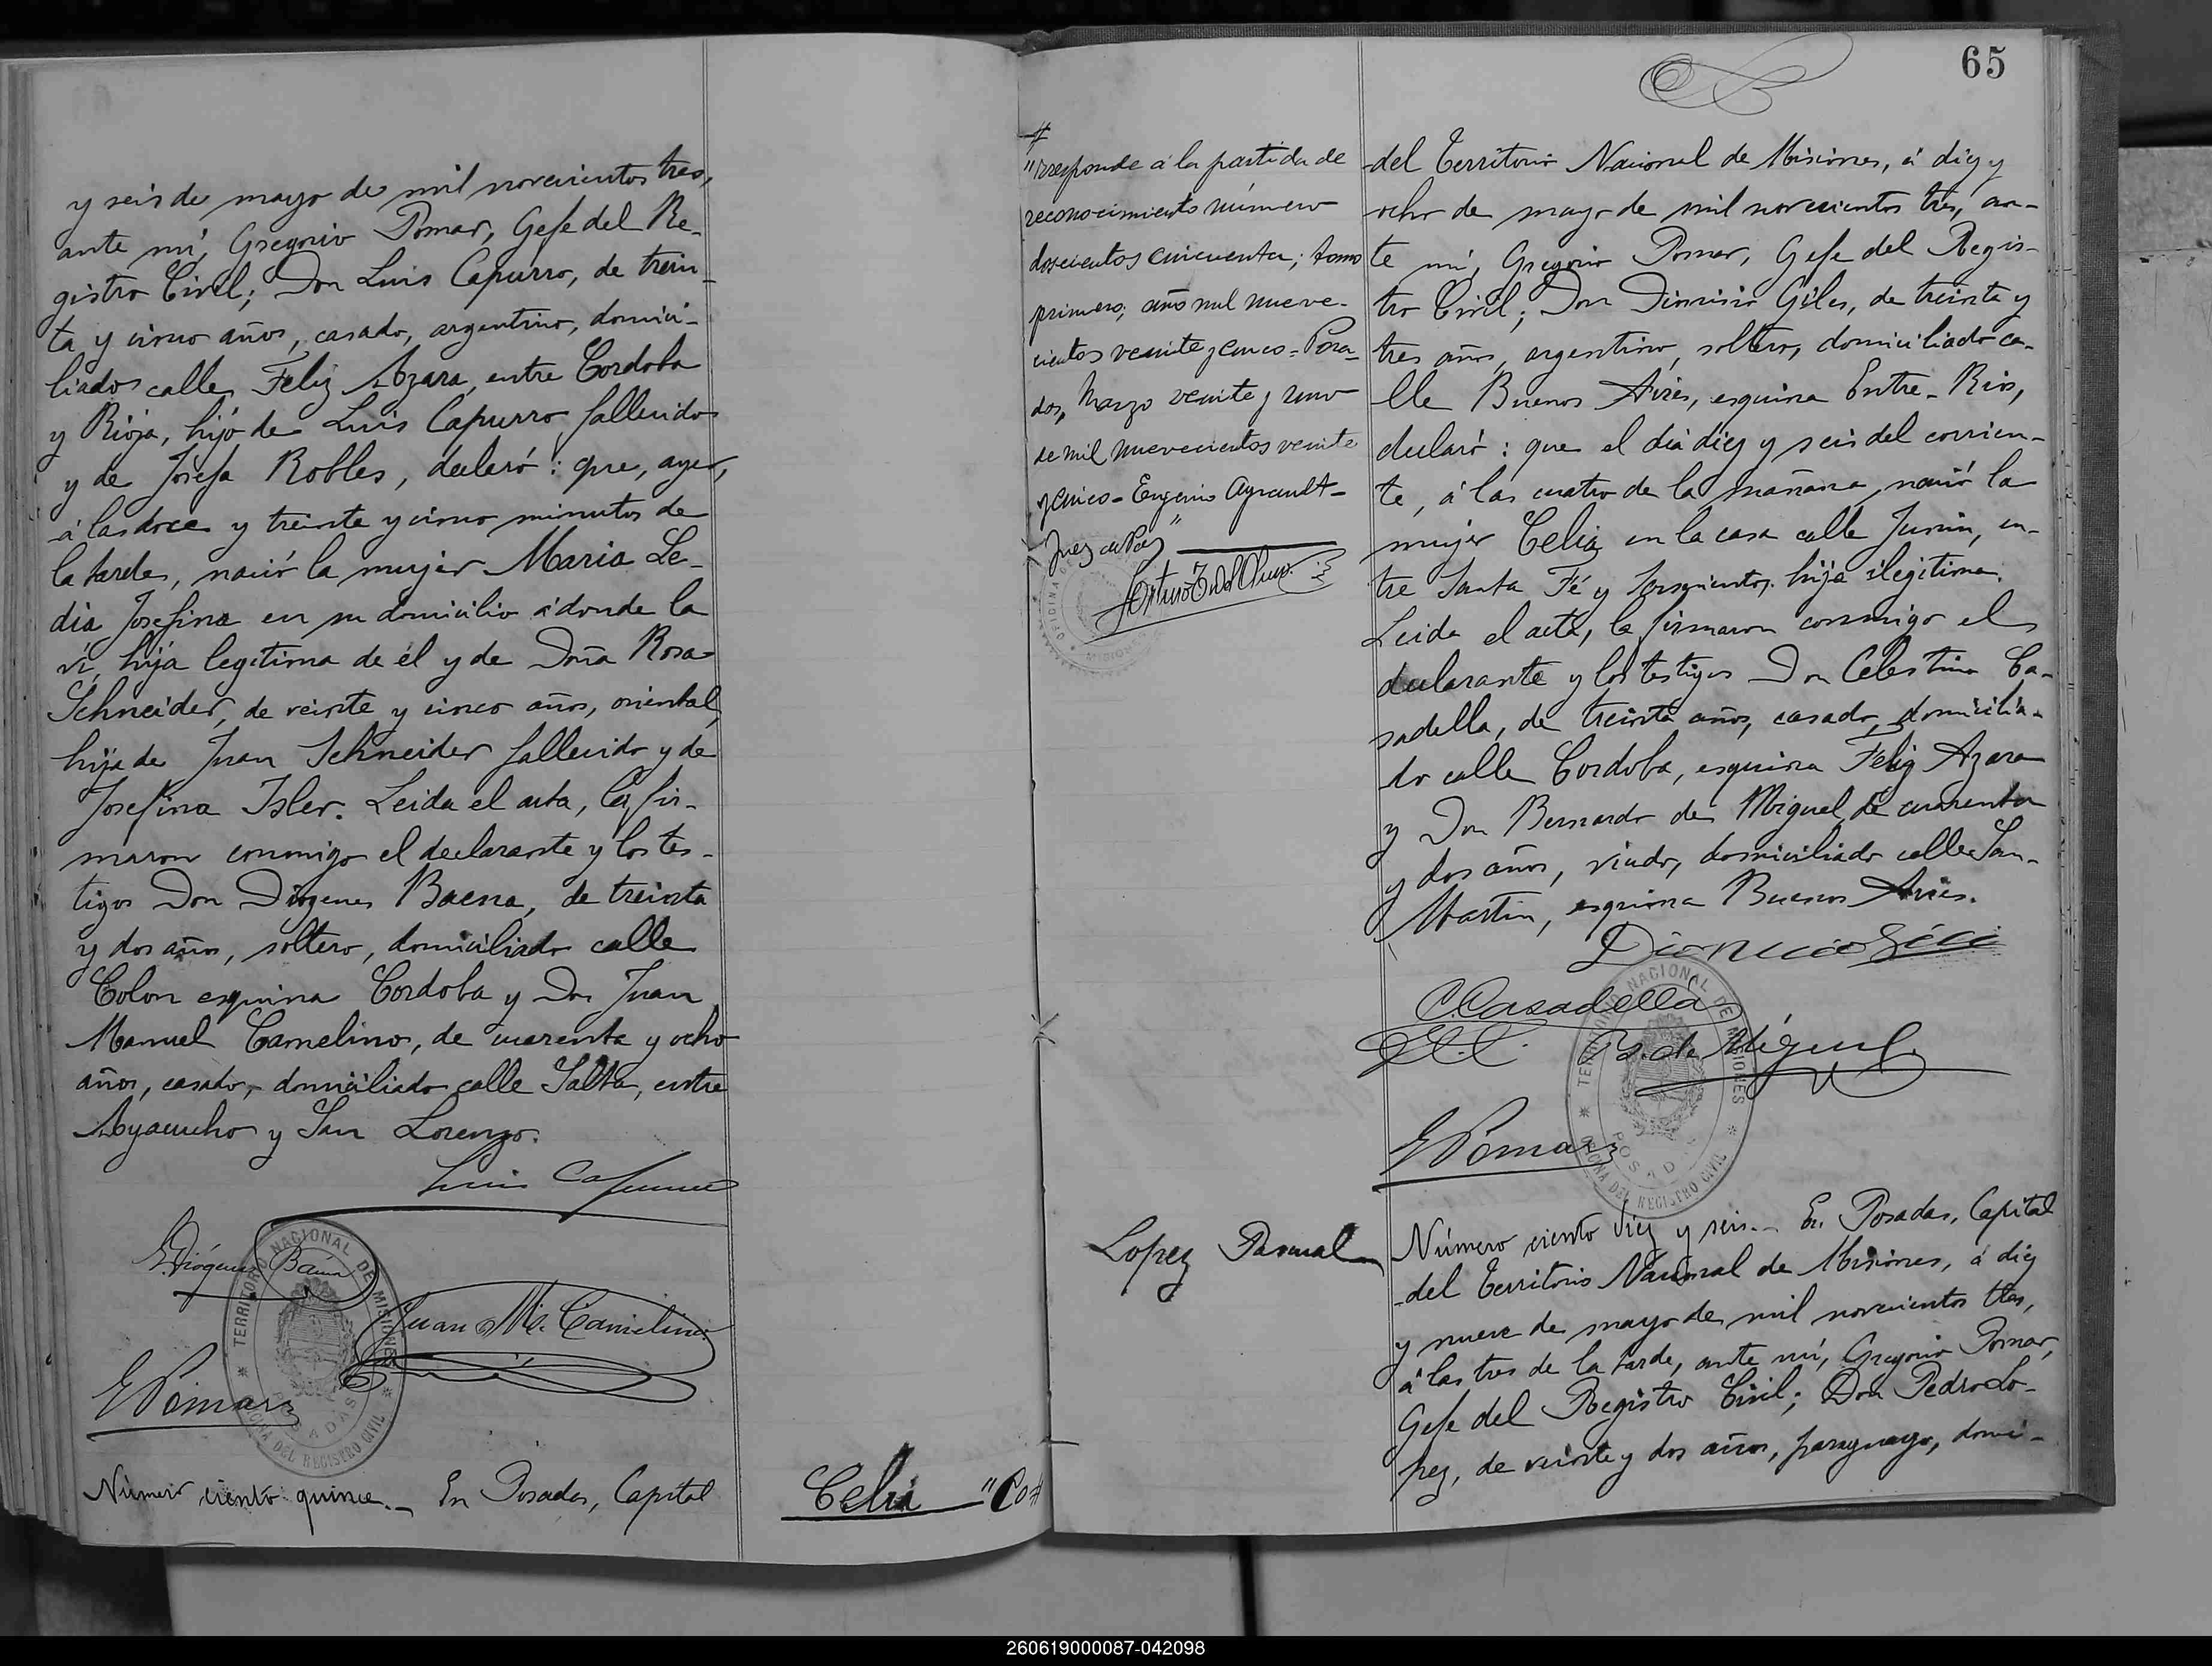 y seis de mayo de mil novecientos tres,
ante mí, Gregorio Pomar, Gefe del Re-
gistro Civil; Don Luis Capurro, de trein-
ta y cinco años, casado, argentino, domici-
liado calle Feliz Azara, entre Cordoba
y Rioja, hijo de Luis Capurro fallecido
y de Josefa Robles, declaró: que, ayer,
á las doce y treinta y cinco minutos de
la tarde, nació la mujer Maria Le-
dia Josefina en su domicilio á donde la
ví, hija legítima de él y de Doña Rosa
Schneider, de veinte y cinco años, oriental,
hija de Juan Schneider fallecido y de
Josefina Isler. Leida el acta, la fir-
maron conmigo el declarante y los tes-
tigos Don Diógenes Baena, de treinta
y dos años, soltero, domiciliado calle
Colon esquina Cordoba y Don Juan
Manuel Camelino, de cuarenta y ocho
años, casado, domiciliado calle Salta, entre
Ayacucho y San Lorenzo.
Luis Capurro
Diógenes Baena
Juan M. Camelino
G Pomar
TERRITORIO NACIONAL DE MISIONES
POSADAS
OFICINA DEL REGISTRO CIVIL
Número ciento quince._ En Posadas, Capital
Celia "Co#
65
#
"rresponde á la partida de
reconocimiento número
doscientos cincuenta; tomo
primero; año mil nueve-
cientos veinte y cinco = Posa-
das, Marzo veinte y uno
de mil nuevecientos veinte
y cinco = Eugenio Ayrault =
Juez de Paz"
OFICINA
MISIONES
del Territorio Nacional de Misiones, á diez y
ocho de mayo de mil novecientos tres, an-
te mí, Gregorio Pomar, Gefe del Regis-
tro Civil; Don Dionisio Giles, de treinta y
tres años, argentino, soltero, domiciliado ca-
lle Buenos Aires, esquina Entre-Rios,
declaró: que el día diez y seis del corrien-
te, á las cuatro de la mañana, nació la
mujer Celia en la casa calle Junin, en-
tre Santa Fé y Sarmiento, hija ilegítima.
Leida el acta, la firmaron conmigo el
declarante y los testigos Don Celestino Ca-
sadella, de treinta años, casado, domicilia-
do calle Cordoba, esquina Feliz Azara
y Don Bernardo de Miguel, de cuarenta
y dos años, viudo, domiciliado calle San-
Martin, esquina Buenos Aires.
Dionicio
C. Casadella
B. de Miguel
G Pomar
TERRITORIO NACIONAL DE MISIONES
POSADAS
OFICINA DEL REGISTRO CIVIL
Lopez Pascual
Número ciento diez y seis._ En Posadas, Capital
del Territorio Nacional de Misiones, á diez
y nueve de mayo de mil novecientos tres,
á las tres de la tarde, ante mí, Gregorio Pomar,
Gefe del Registro Civil; Don Pedro Lo-
pez, de veinte y dos años, paraguayo, domi-
260619000087-042098